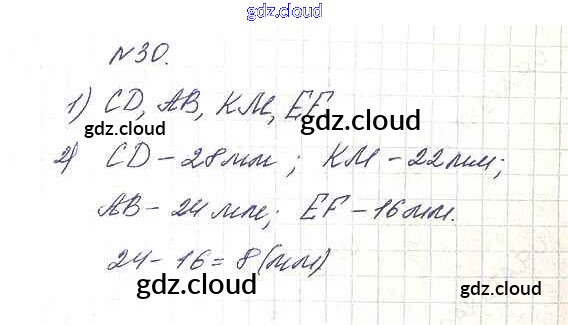 gdz.cloud
gdz.cloud
№30.
1) CD, AB, KM, EF
gdz.cloud
gdz.cloud
2) CD – 28 мм; KM – 22 мм;
AB – 24 мм; EF – 16 мм.
24 – 16 = 8 (мм)
gdz.cloud
gdz.cloud